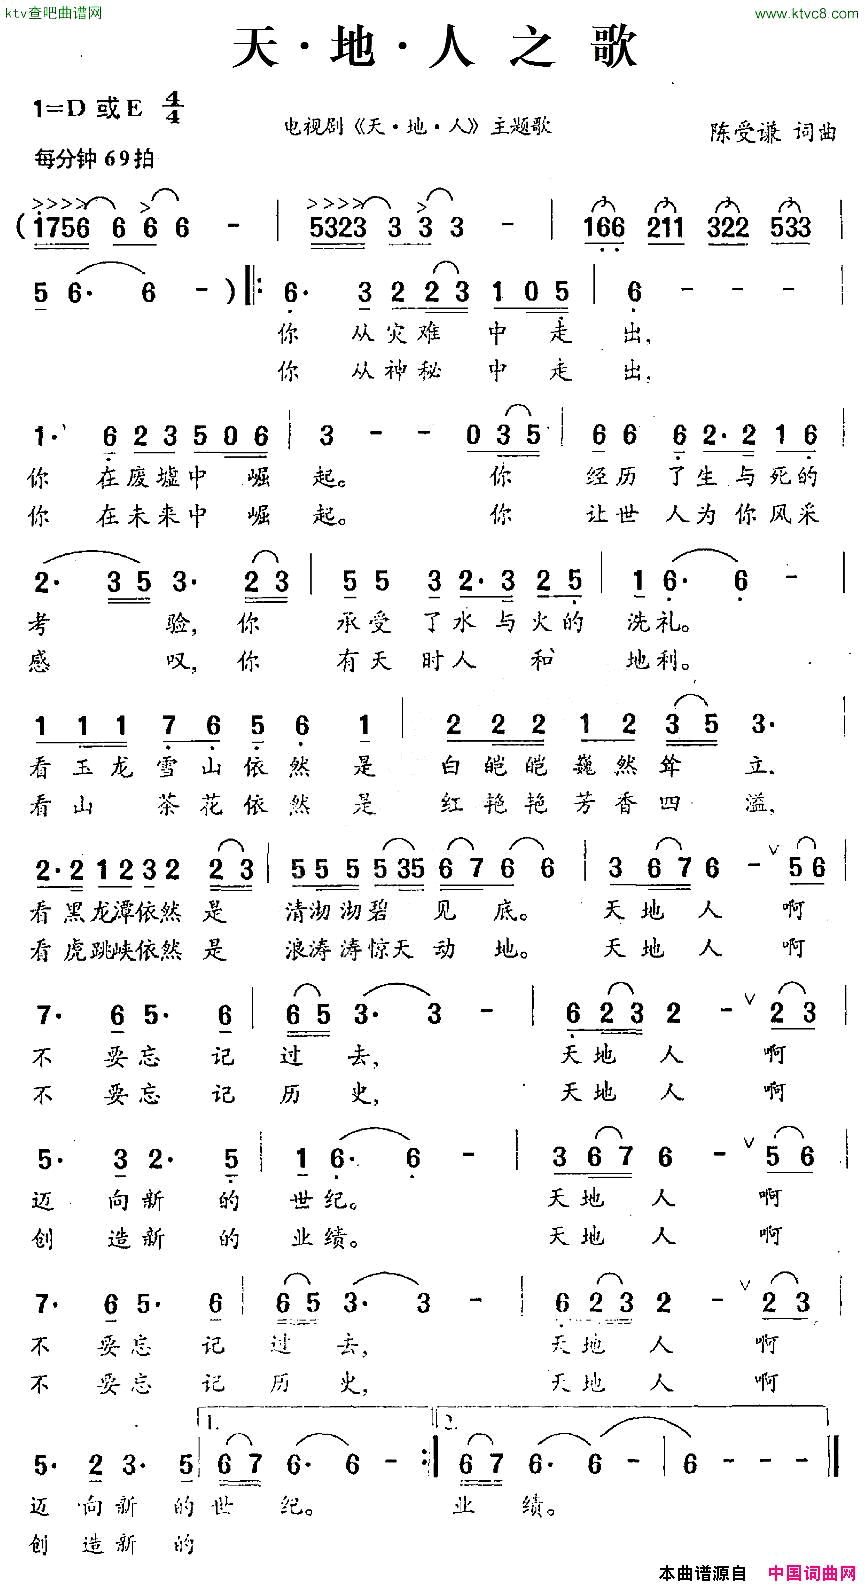 ktv查吧曲谱网
www.ktvc8.com
天·地·人之歌
1=D 或 E 4/4
电视剧《天·地·人》主题歌
陈受谦 词曲
每分钟 69 拍
(1756 6 6 6 - | 5323 3 3 3 - | 166 211 322 533
5 6· 6 - ) ‖: 6· 3 2 23 1 05 | 6 - - - |
你 从灾难 中 走 出,
你 从神秘 中 走 出,
1· 6 23 5 06 | 3 - - 035 | 66 6 2·2 16
你 在废墟中 崛 起。 你 经历 了生与死的
你 在未来中 崛 起。 你 让世 人为你风采
2· 35 3· 23 | 55 3 2·3 25 | 1 6· 6 - |
考 验, 你 承受 了水与火的 洗礼。
感 叹, 你 有天 时人 和 地利。
1 1 1 7 6 5 6 1 | 2 2 2 2 1 2 35 3· |
看玉龙雪山依然是 白皑皑巍然耸 立.
看山 茶花依然是 红艳艳芳香四 溢,
2·2 1232 23 | 55 5 5 35 67 6 6 | 3 67 6 - ∨ 56
看黑龙潭依然是 清沏沏碧 见 底。 天地 人 啊
看虎跳峡依然是 浪涛涛惊天 动 地。 天地 人 啊
7· 6 5· 6 | 65 3· 3 - | 6 23 2 - ∨ 23
不 要忘 记 过 去, 天地 人 啊
不 要忘 记 历 史, 天地 人 啊
5· 3 2· 5 | 1 6· 6 - | 3 67 6 - ∨ 56
迈 向新 的 世纪。 天地 人 啊
创 造新 的 业绩。 天地 人 啊
7· 6 5· 6 | 65 3· 3 - | 6 23 2 - ∨ 23
不 要忘 记 过 去, 天地 人 啊
不 要忘 记 历 史, 天地 人 啊
1. 2.
5· 2 3· 5 | 67 6· 6 - :‖ 67 6· 6 - | 6 - - - ‖
迈 向新 的世 纪。 业 绩。
创 造新 的
本曲谱源自 中国词曲网